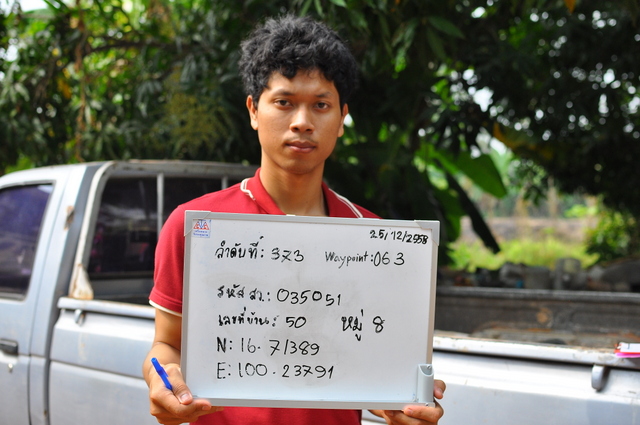 25/12/2558
ลำดับที่: 373 Waypoint: 063
รหัส สว.: 035051
เลขที่บ้าน: 50 หมู่ 8
N: 16.71389
E: 100.23791